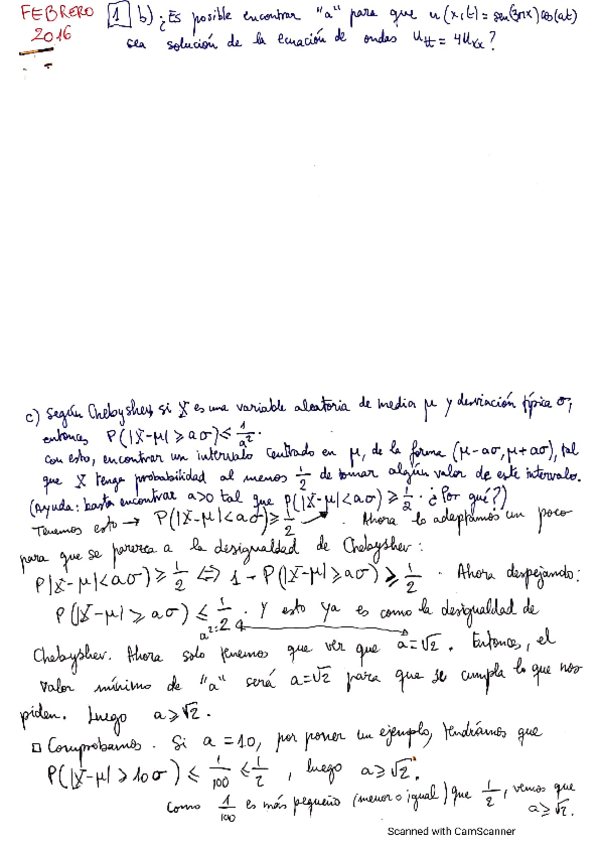 FEBRERO 2016
1 b) ¿Es posible encontrar "a" para que u(x,t) = sen(3πx)cos(at)
sea solución de la ecuación de ondas u_tt = 4u_xx?
c) Según Chebyshev, si X es una variable aleatoria de media μ y desviación típica σ,
entonces P(|X-μ| ≥ aσ) ≤ 1/a².
Con esto, encontrar un intervalo centrado en μ, de la forma (μ-aσ, μ+aσ), tal
que X tenga probabilidad al menos 1/2 de tomar algún valor de este intervalo.
(Ayuda: basta encontrar a>0 tal que P(|X-μ|<aσ) ≥ 1/2. ¿Por qué?)
Tenemos esto → P(|X-μ|<aσ) ≥ 1/2. Ahora lo adaptamos un poco
para que se parezca a la desigualdad de Chebyshev:
P|X-μ|<aσ) ≥ 1/2 ⟺ 1 - P(|X-μ| ≥ aσ) ≥ 1/2. Ahora despejando:
P(|X-μ| ≥ aσ) ≤ 1/2. Y esto ya es como la desigualdad de
a²=2
Chebyshev. Ahora solo tenemos que ver que a=√2. Entonces, el
valor mínimo de "a" será a=√2 para que se cumpla lo que nos
piden. Luego a ≥ √2.
□ Comprobamos. Si a = 10, por poner un ejemplo, tendríamos que
P(|X-μ| ≥ 10σ) ≤ 1/100 ≤ 1/2, luego a ≥ √2.
como 1/100 es más pequeño (menor o igual) que 1/2, vemos que
a ≥ √2.
Scanned with CamScanner